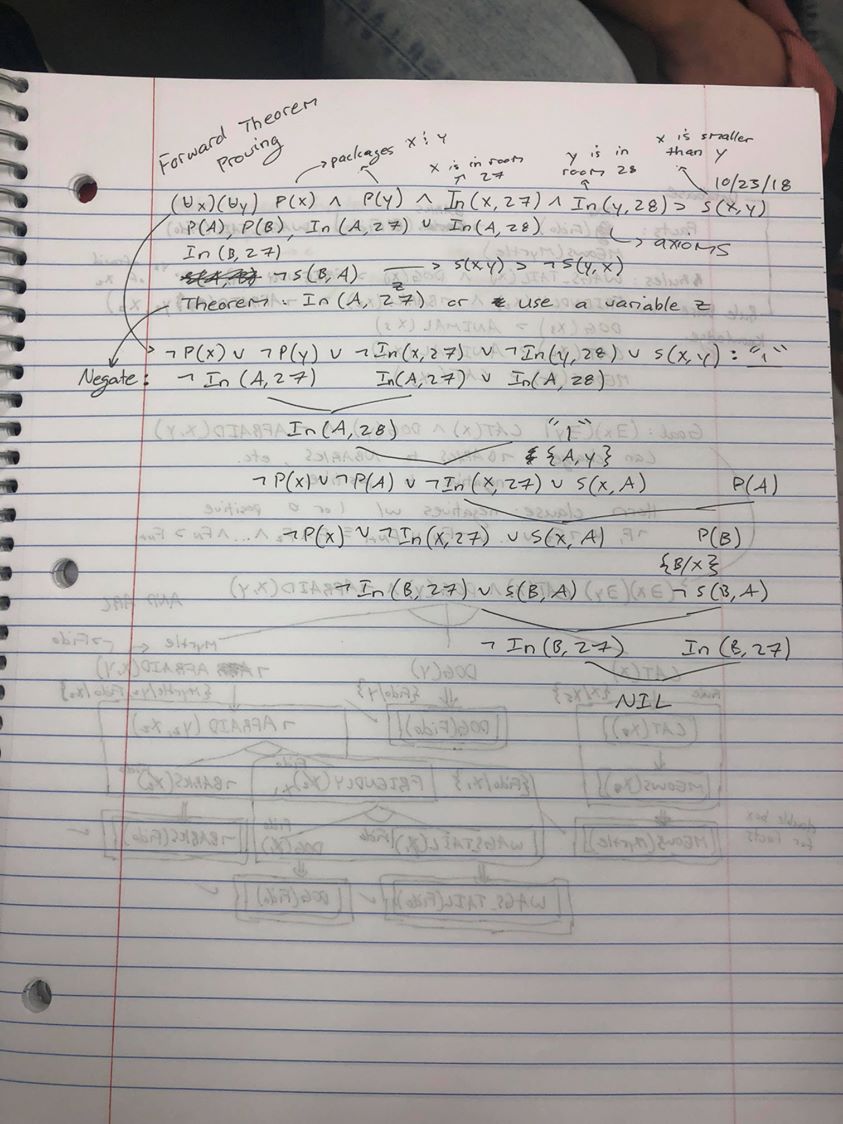 Forward Theorem
Proving
packages x & y
x is in room
27
y is in
room 28
x is smaller
than y
10/23/18
(∀x)(∀y) P(x) ∧ P(y) ∧ In(x,27) ∧ In(y,28) ⊃ S(x,y)
P(A), P(B), In(A,27) ∨ In(A,28)
axioms
In(B,27)
¬S(B,A) → S(x,y) ⊃ ¬S(y,x)
Theorem: In(A,27) or use a variable z
z
¬P(x) ∨ ¬P(y) ∨ ¬In(x,27) ∨ ¬In(y,28) ∨ S(x,y) : "1"
Negate: ¬In(A,27) In(A,27) ∨ In(A,28)
In(A,28) "1"
{A,y}
¬P(x) ∨ ¬P(A) ∨ ¬In(x,27) ∨ S(x,A) P(A)
¬P(x) ∨ ¬In(x,27) ∨ S(x,A) P(B)
{B/x}
¬In(B,27) ∨ S(B,A) ¬S(B,A)
¬In(B,27) In(B,27)
NIL